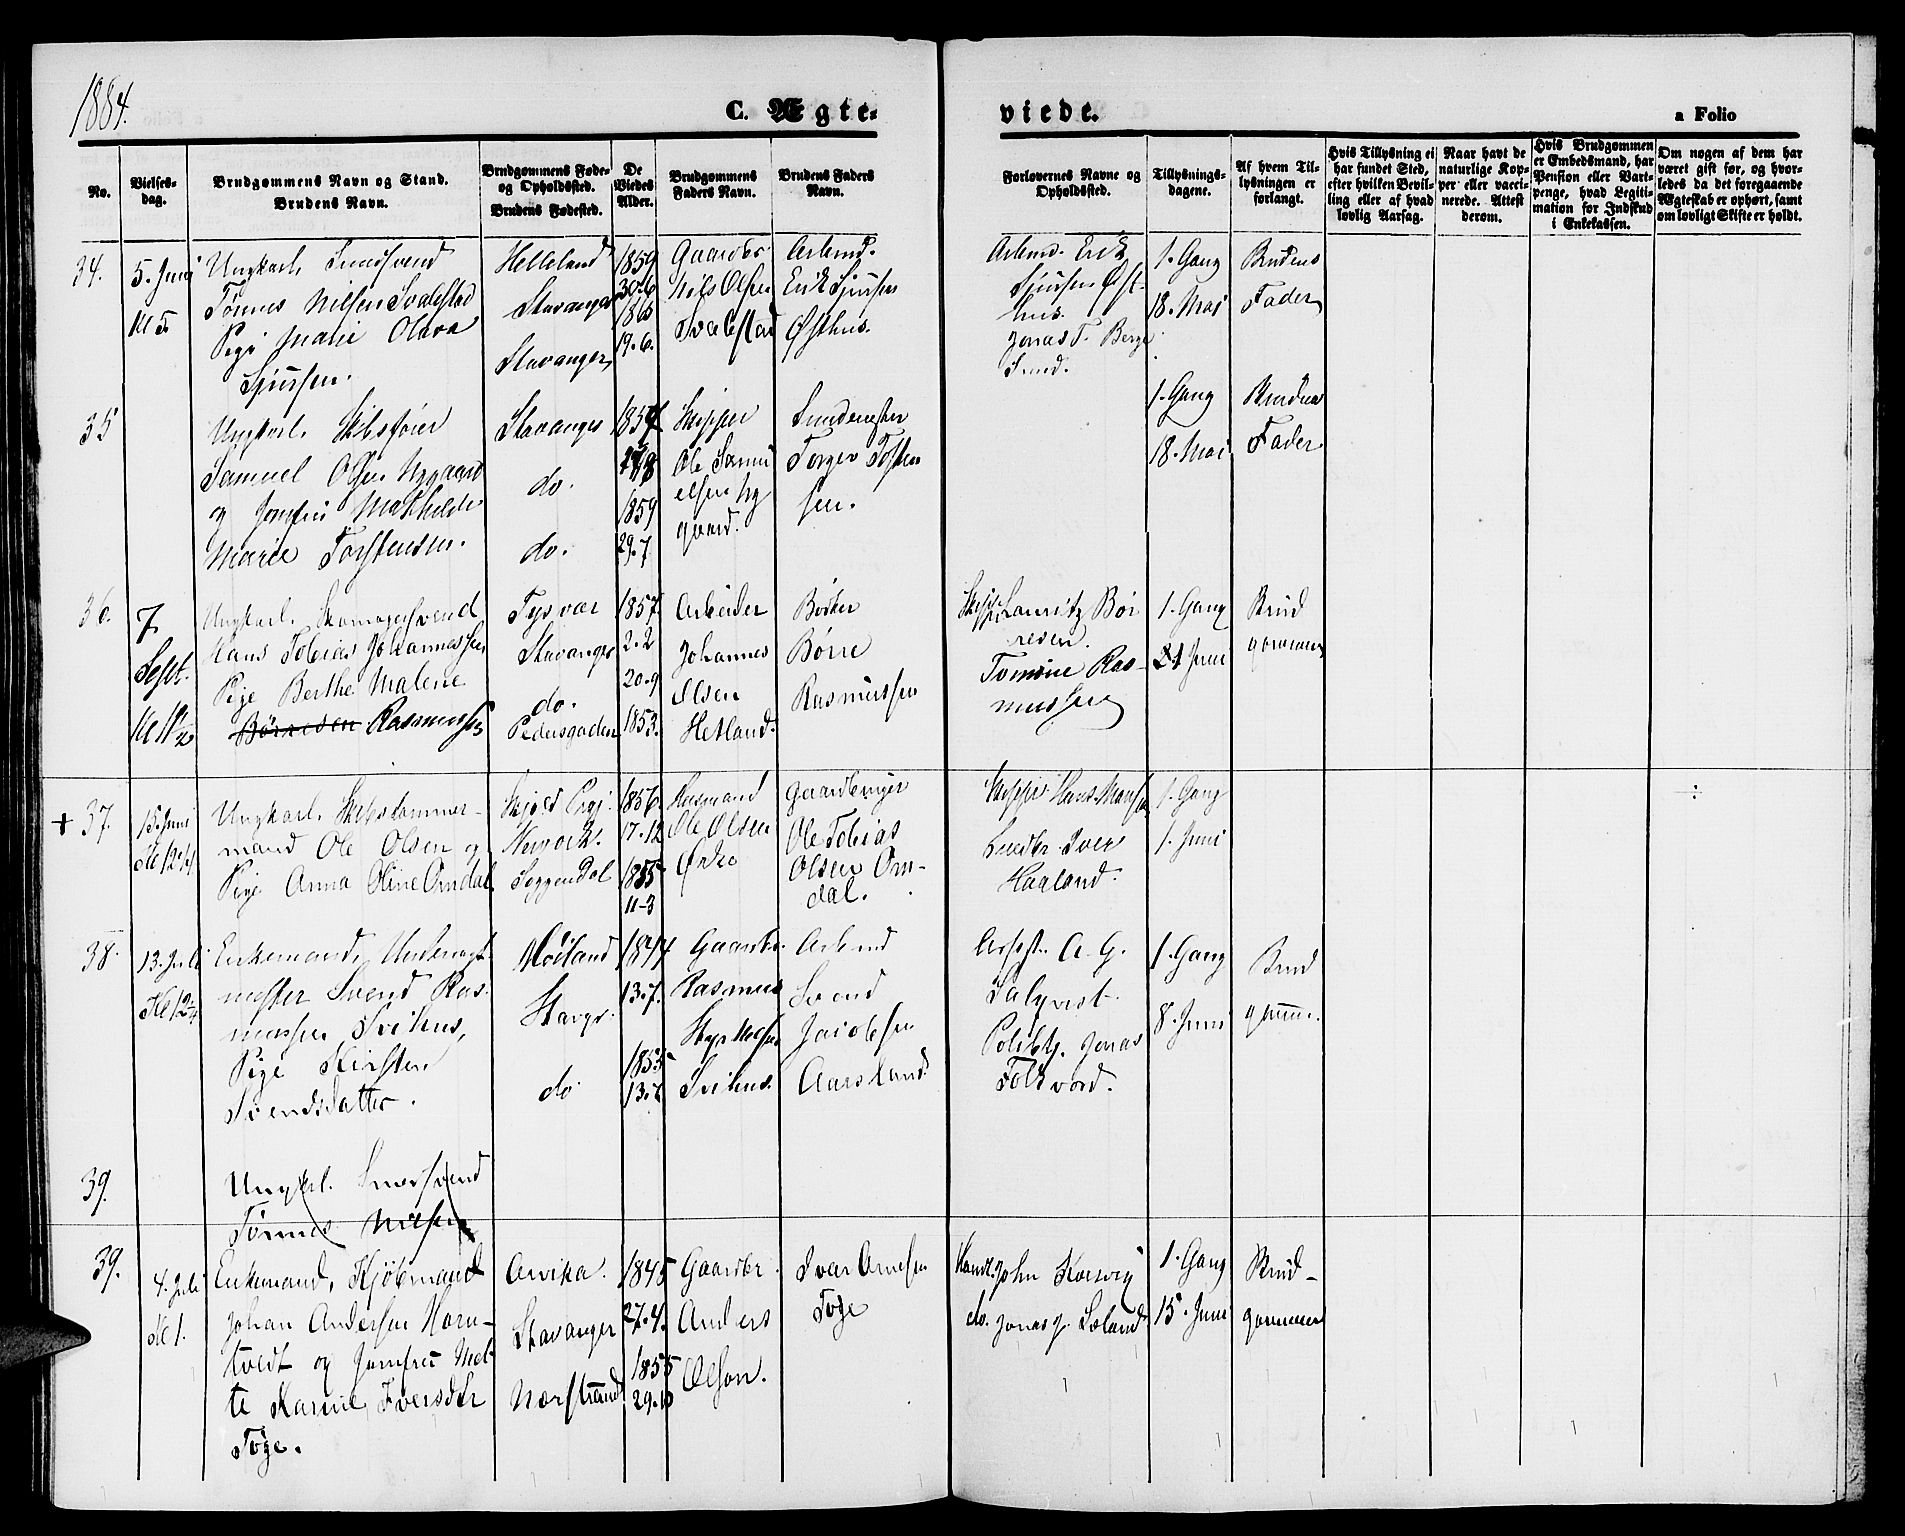 1884.
C. Ægte-
viede.
a Folio
No.
Vielses-
dag.
Brudgommens Navn og Stand.
Brudens Navn.
Brudgommens Føde-
og Opholdssted.
Brudens Fødested.
De
Viedes
Alder.
Brudgommens
Faders Navn.
Brudens Faders
Navn.
Forlovernes Navne og
Opholdssted.
Tillysnings-
dagene.
Af hvem Til-
lysningen er
forlangt.
Hvis Tillysning ei
har fundet Sted,
efter hvilken Bevil-
ling eller af hvad
lovlig Aarsag.
Naar havt de
naturlige Kop-
per eller vacci-
nerede. Attest
derom.
Hvis Brudgommen
er Embedsmand, har
Pension eller Vart-
penge, hvad Legiti-
mation for Indskud
i Enkekassen.
Om nogen af dem har
været gift før, og hvor-
ledes da det foregaaende
Ægteskab er ophørt, samt
om lovligt Skifte er holdt.
34.
5. Juni
Kl 5
Ungkarl,
Tønnes Nilsen Svalestad
Pige Malie Olava
Sjursen.
Helleland
Stavanger
Stavanger
1859
30.6
186
19.6.
Gaardbr
Nils Olsen
Svalestad
Arbmd.
Erik Sjursen
Østhus.
Arbmd. Erik
Sjursen Øst-
hus.
Jonas T. Berge
Smed.
1. Gang
18. Mai
Brudens
Fader
35
Ungkarl, Skibsfører
Samuel Olsen Nygaard
og Jomfru Mathilde
Marie Torstensen.
Stavanger
do.
do.
1857
1859
29.7
Skipper
Ole Samu
elsen Ny
gaard.
Torger Torsten
sen.
1. Gang
18. Mai
Brudens
Fader
36.
7
Sept.
Kl 11½
Ungkarl, Skomagersvend
Hans Tobias Johannessen
Pige Berthe Malene
Børresen Rasmussen
Tysvær
Stavanger
do.
Pedersgaden
1857
2.2
20.9
1853.
Arbeider
Johannes
Olsen
Hetland.
Bødker
Børre
Rasmussen
Skipper Lauritz Bør
resen.
Tomine Ras-
mussen
1. Gang
21 Juni
Brud
gommen
+ 37.
15. Juni
Kl 12¼
Ungkarl, Skibstømmer-
mand Ole Olsen og
Pige Anna Oline Omdal
Skjold Prgj.
Nework.
Soggendal
1856.
17.12
1855
11-3
Husmand
Ole Olsen
Ørke
Gaardbruger
Ole Tobias
Olsen Om-
dal.
Skipper Hans Hansen
Snedker Iver
Haaland.
1. Gang
1. Juni
÷
38.
13. Juli
Enkemand,
mester Svend Ras-
mussen Svihus,
Pige Kirsten
Svendsdatter.
Høiland
Stavgr.
do
1844
13.7.
1853
13.7
Gaardbr.
Rasmus
Svihus.
Arbmd
Svend
Jacobsen
Aarsland.
A. G.
Salqvist.
Politb. Jonas
Folkvord.
1. Gang
8. Juni
Brud
gomm.
39.
Ungkrl. Smedsvend
Tønnes Nilsen
39.
4. Juli
Kl 1.
Enkemand, Kjøbmand
Johan Andersen Horn-
tvedt og Jomfru Met-
te Karine Iversdtr
Tøge.
Arvika.
Stavanger
Nærstrand.
1845
27.4.
1855
29.10
Gaardbr.
Anders
Olson.
Ivar Arnesen
Tøge
Handl. John Korsvig
do. Jonas J. Lœland
1. Gang
15. Juni
Brud-
gommen